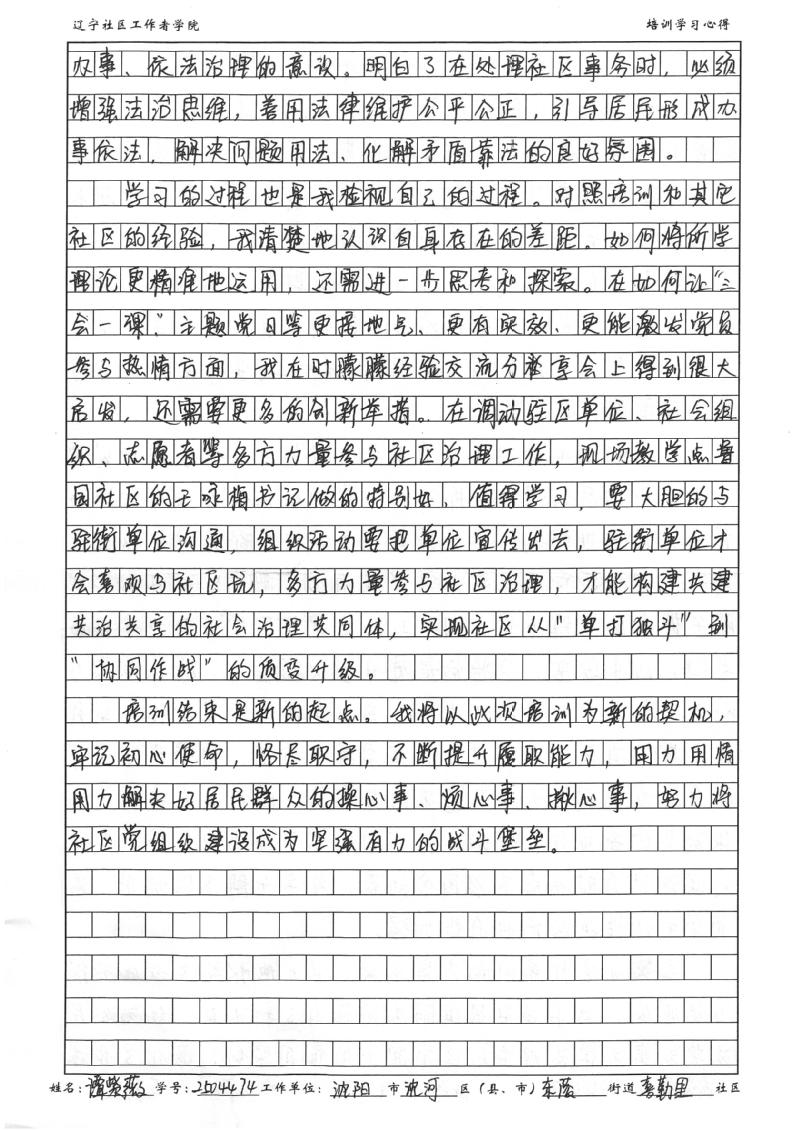 辽宁社区工作者学院 培训学习心得
办事、依法治理的意识。明白了在处理社区事务时，必须
增强法治思维，善用法律维护公平公正，引导居民形成办
事依法、解决问题用法、化解矛盾靠法的良好氛围。
学习的过程也是我检视自己的过程。对照培训和其它
社区的经验，我清楚地认识自身存在的差距。如何将所学
理论更精准地运用，还需进一步思考和探索。在如何让“三
会一课”、主题党日等更接地气、更有实效、更能激发党员
参与热情方面，我在时朦朦经验交流分享会上得到很大
启发，还需要更多的创新举措。在调动驻区单位、社会组
织、志愿者等多方力量参与社区治理工作，现场教学点
园社区的王咏梅书记做的特别好、值得学习，要大胆的与
驻街单位沟通，组织活动要把单位宣传出去，驻街单位才
会喜欢与社区玩，多方力量参与社区治理，才能构建共建
共治共享的社会治理共同体，实现社区从“单打独斗”到
“协同作战”的质变升级。
培训结束是新的起点。我将以此次培训为新的契机，
牢记初心使命，恪尽职守，不断提升履职能力，用力用情
用力解决好居民群众的操心事、烦心事、揪心事，努力将
社区党组织建设成为坚强有力的战斗堡垒。
姓名：谭紫薇 学号：2504474 工作单位：沈阳 市 沈河 区（县、市）东陵 街道 喜勤里 社区